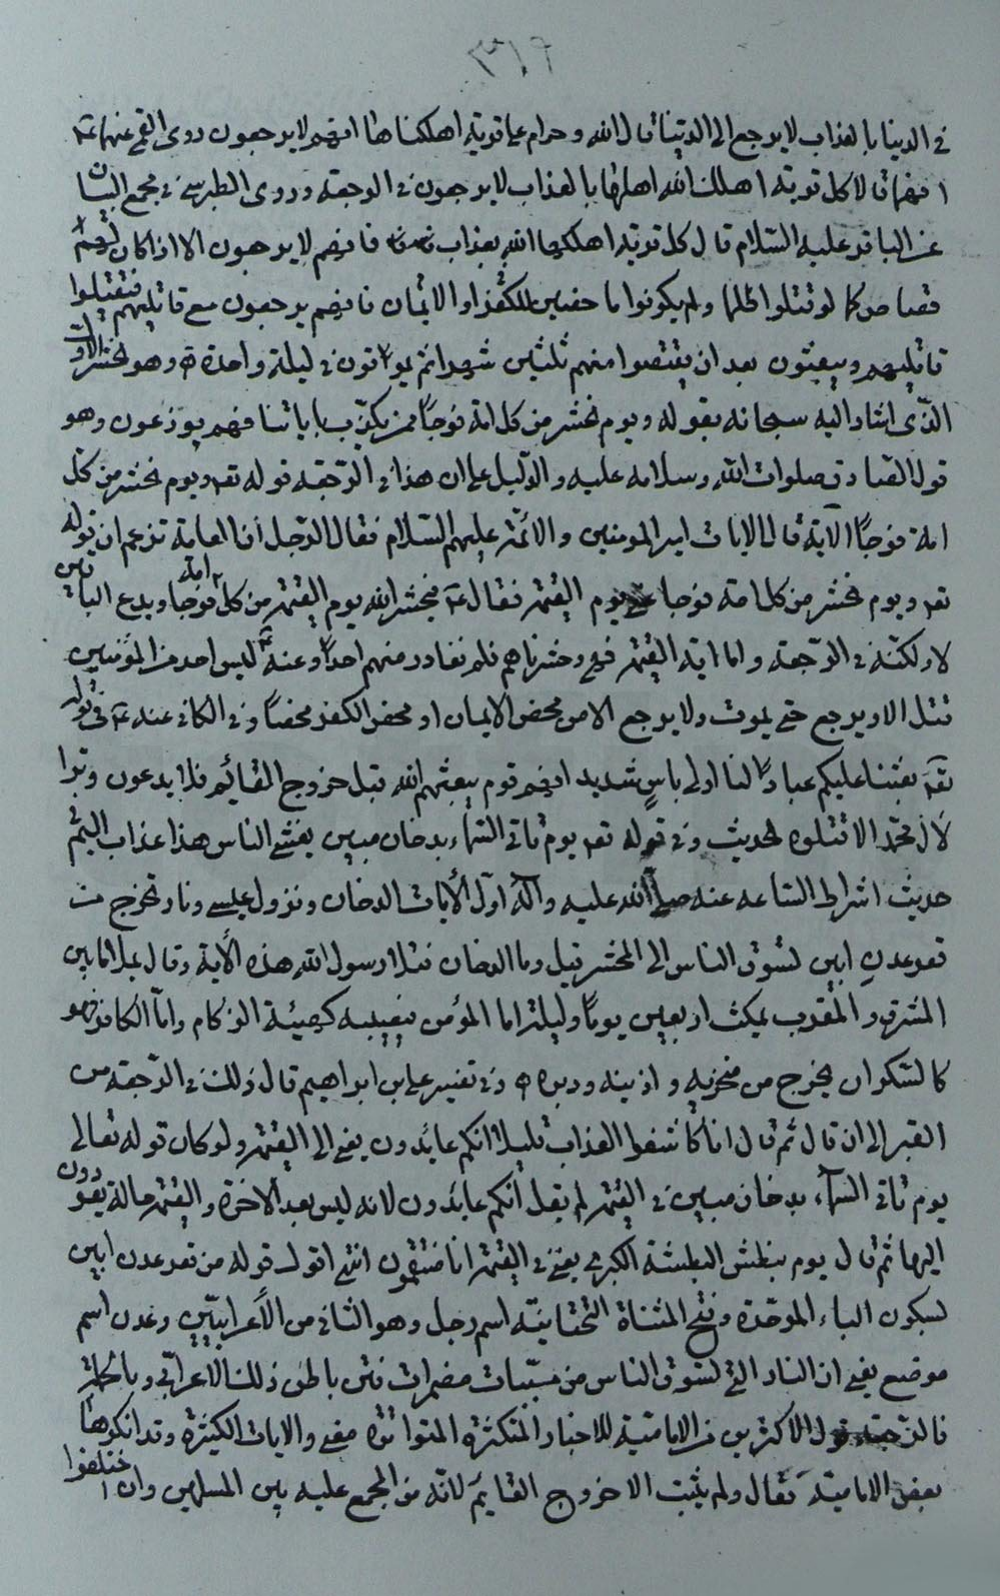 ٣١٩
في الدنيا بالعذاب لا يرجع الى الدنيا قال الله وحرام على قرية اهلكناها انهم لا يرجعون روى القمي عنهما عم
انهما قالا كل قرية اهلك الله اهلها بالعذاب لا يرجعون في الرجعة وروى الطبرسي في مجمع البيان
عن الباقر عليه السلام قال كل قرية اهلكها الله بعذاب فانهم لا يرجعون الا اذا كان لهم
قصاص كما لو قتلوا ظلما ولم يكونوا ماحضين للكفر او الايمان فانهم يرجعون مع قاتليهم فيقتلوا
قاتليهم ويعيثون بعد ان يقتصوا منهم ثلثين شهرا ثم يموتون في ليلة واحدة وهو الحشر الاول
الذي اشار اليه سبحانه بقوله ويوم نحشر من كل امة فوجا ممن يكذب باياتنا فهم يوزعون وهو
قول الصادق صلوات الله وسلامه عليه والدليل على ان هذا في الرجعة قوله تعم ويوم نحشر من كل
امة فوجا الآية قال الايات امير المومنين والائمة عليهم السلام فقال الرجل ان العامة تزعم ان قوله
تعم ويوم نحشر من كل امة فوجا يوم القيمة فقال عم فيحشر الله يوم القيمة من كل امة فوجا ويدع الباقين
لا ولكنه في الرجعة واما اية القيمة فهي وحشرناهم فلم نغادر منهم احدا وعنه عم ليس احد من المؤمنين
قتل الا ويرجع حتى يموت ولا يرجع الا من محض الايمان او محض الكفر محضا وفي الكافي عنه عم في قوله
تعم بعثنا عليكم عبادا لنا اولي باس شديد انهم قوم يبعثهم الله قبل خروج القائم فلا يدعون وترا
لآل محمد الا قتلوه الحديث وفي قوله تعم يوم تاتي السماء بدخان مبين يغشى الناس هذا عذاب اليم في
حديث اشراط الساعة عنه صلى الله عليه وآله اول الآيات الدخان ونزول عيسى ونار تخرج من
قعر عدن ابين تسوق الناس الى المحشر قيل وما الدخان فتلا رسول الله هذه الآية وقال يملأ ما بين
المشرق والمغرب يمكث اربعين يوما وليلة اما المؤمن فيصيبه كهيئة الزكام واما الكافر فهو
كالسكران يخرج من منخريه واذنيه ودبره وفي تفسير علي بن ابراهيم قال ذلك في الرجعة من
القبر الى ان قال ثم قال انا كاشفوا العذاب قليلا انكم عائدون يعني الى القيمة ولو كان قوله تعالى
يوم تاتي السماء بدخان مبين في القيمة لم يقل انكم عائدون لانه ليس بعد الآخرة والقيمة حالة يعودون
اليها ثم قال يوم نبطش البطشة الكبرى يعني في القيمة انا منتقمون انتهى اقول قوله من قعر عدن ابين
بسكون الباء الموحدة وفتح المثناة التحتانية اسم رجل وهو الثاني من الأعرابيين وعدن اسم
موضع يعني ان النار التي تسوق الناس من مسببات مضمرات فتن باطن ذلك الاعرابي وبالجملة
فالرجعة قول الاكثرين من الامامية للاخبار المتكثرة المتواترة معنى والايات الكثيرة وقد انكرها
بعض الامامية فقال ولم يثبت الا خروج القايم لانه من المجمع عليه بين المسلمين وان اختلفوا